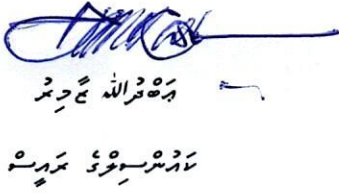 ޢަބްދުﷲ ޒާމިރު
ކައުންސިލްގެ ރައީސް